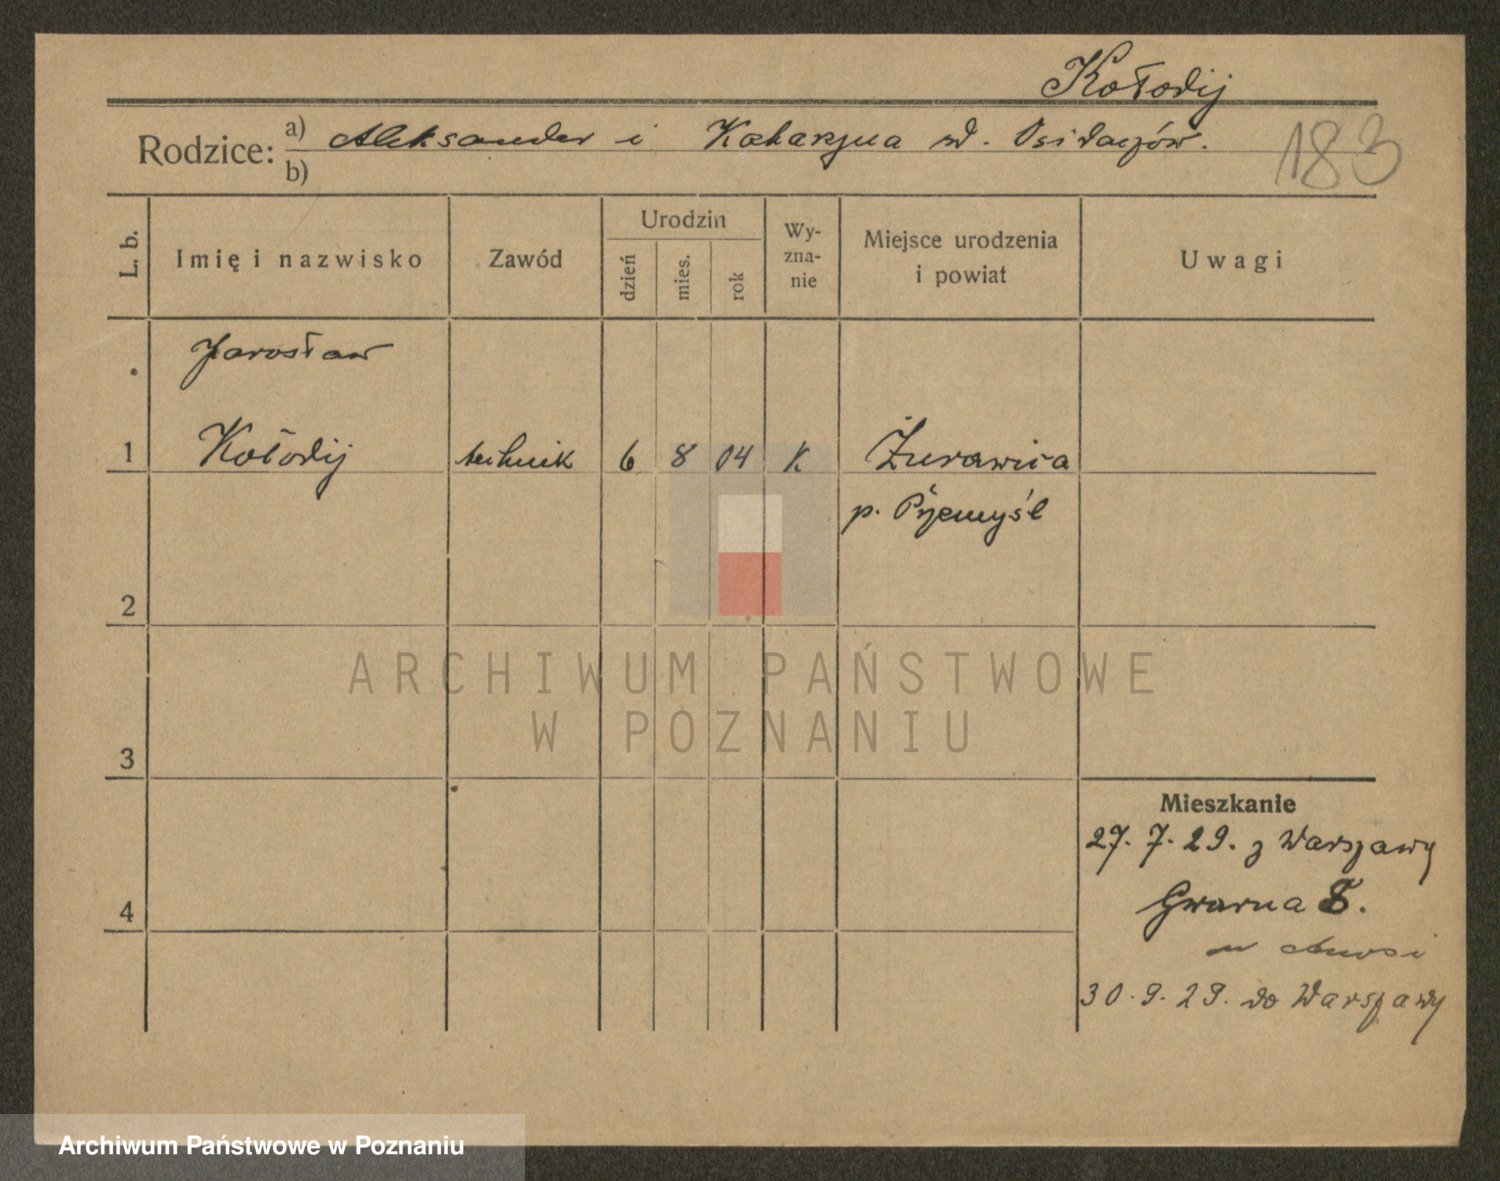 Kołodij
Rodzice: a) Aleksander i Katarzyna
b)
183
L. b.
Imię i nazwisko
Zawód
Urodzin
dzień
mies.
rok
Wy-
zna-
nie
Miejsce urodzenia
i powiat
Uwagi
Jarosław
1 Kołodij technik 6 8 04 K Żurawica
p. Przemyśl
2
3
4
Mieszkanie
27. 7. 29. z Warszawy
Gwarna 8.
30. 9. 29. do Warszawy
ARCHIWUM PAŃSTWOWE
W POZNANIU
Archiwum Państwowe w Poznaniu